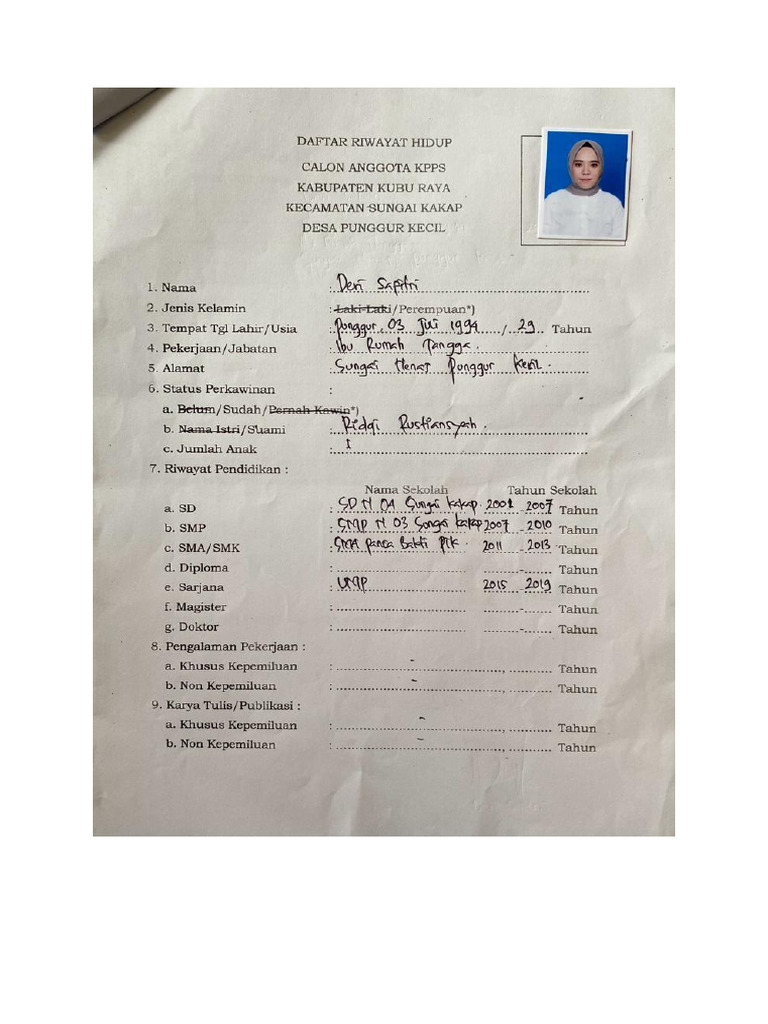 DAFTAR RIWAYAT HIDUP
CALON ANGGOTA KPPS
KABUPATEN KUBU RAYA
KECAMATAN SUNGAI KAKAP
DESA PUNGGUR KECIL
1. Nama : Devi Sapitri
2. Jenis Kelamin : Laki-Laki/Perempuan*)
3. Tempat Tgl Lahir/Usia : Punggur, 03 Juli 1994 / 29 Tahun
4. Pekerjaan/Jabatan : Ibu Rumah Tangga.
5. Alamat : Sungai Punggur Kecil.
6. Status Perkawinan :
a. Belum/Sudah/Pernah Kawin*)
b. Nama Istri/Suami : Ridqi Rustiansyah.
c. Jumlah Anak : 1
7. Riwayat Pendidikan :
Nama Sekolah Tahun Sekolah
a. SD : SD N 04 Sungai Kakap 2001 - 2007 Tahun
b. SMP : SMP N 03 Sungai Kakap 2007 - 2010 Tahun
c. SMA/SMK : SMA Panca Bakti Ptk. 2011 - 2013 Tahun
d. Diploma : - Tahun
e. Sarjana : 2015 - 2019 Tahun
f. Magister : - Tahun
g. Doktor : - Tahun
8. Pengalaman Pekerjaan :
a. Khusus Kepemiluan : - , Tahun
b. Non Kepemiluan : - , Tahun
9. Karya Tulis/Publikasi :
a. Khusus Kepemiluan : - , Tahun
b. Non Kepemiluan : - , Tahun